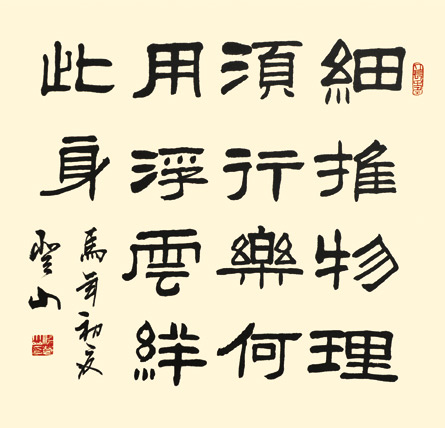 細推物理
須行樂何
用浮雲絆
此身
馬年初夏
雲山